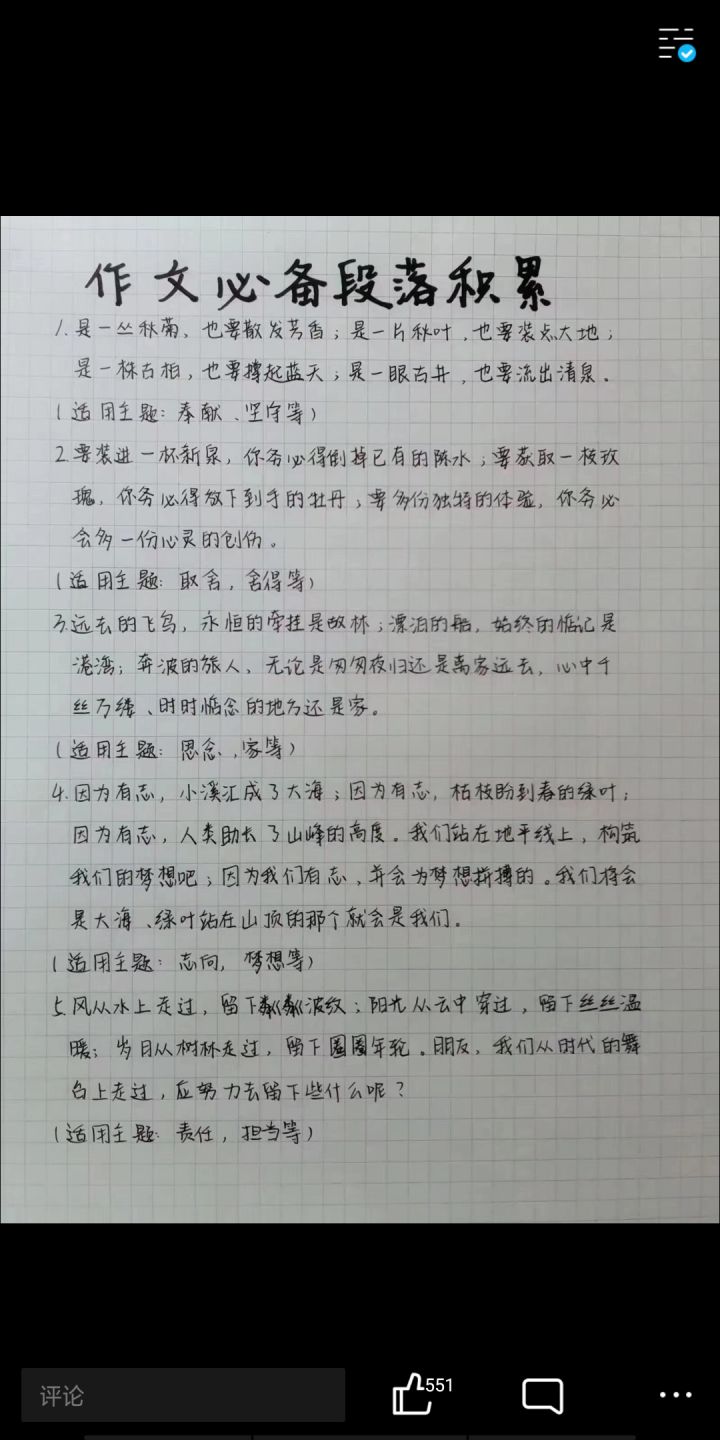 作文必备段落积累
1.是一丛秋菊，也要散发芳香；是一片秋叶，也要装点大地；
是一株古柏，也要撑起蓝天；是一眼古井，也要流出清泉。
(适用主题：奉献、坚守等)
2.要装进一杯新泉，你务必得倒掉已有的陈水；要获取一枝玫
瑰，你务必得放下到手的牡丹；要多份独特的体验，你务必
会多一份心灵的创伤。
(适用主题：取舍，舍得等)
3.远去的飞鸟，永恒的牵挂是故林；漂泊的船，始终的惦记是
港湾；奔波的旅人，无论是匆匆夜归还是离家远去，心中千
丝万缕、时时惦念的地方还是家。
(适用主题：思念、家等)
4.因为有志，小溪汇成了大海；因为有志，枯枝盼到春的绿叶；
因为有志，人类助长了山峰的高度。我们站在地平线上，构筑
我们的梦想吧；因为我们有志，并会为梦想拼搏的。我们将会
是大海、绿叶站在山顶的那个就会是我们。
(适用主题：志向，梦想等)
5.风从水上走过，留下粼粼波纹；阳光从云中穿过，留下丝丝温
暖；岁月从树林走过，留下圈圈年轮。朋友，我们从时代的舞
台上走过，应努力去留下些什么呢？
(适用主题：责任，担当等)
评论
551